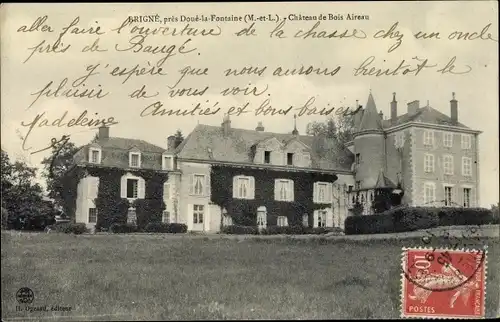 BRIGNÉ, près Doué-la-Fontaine (M.-et-L.) - Château de Bois Aireau
aller faire l'ouverture de la chasse chez un oncle
près de Baugé.
J'espère que nous aurons bientôt le
plaisir de vous voir.
Amitiés et bons baisers
Madeleine
10
POSTES
H. Dgraud, éditeur